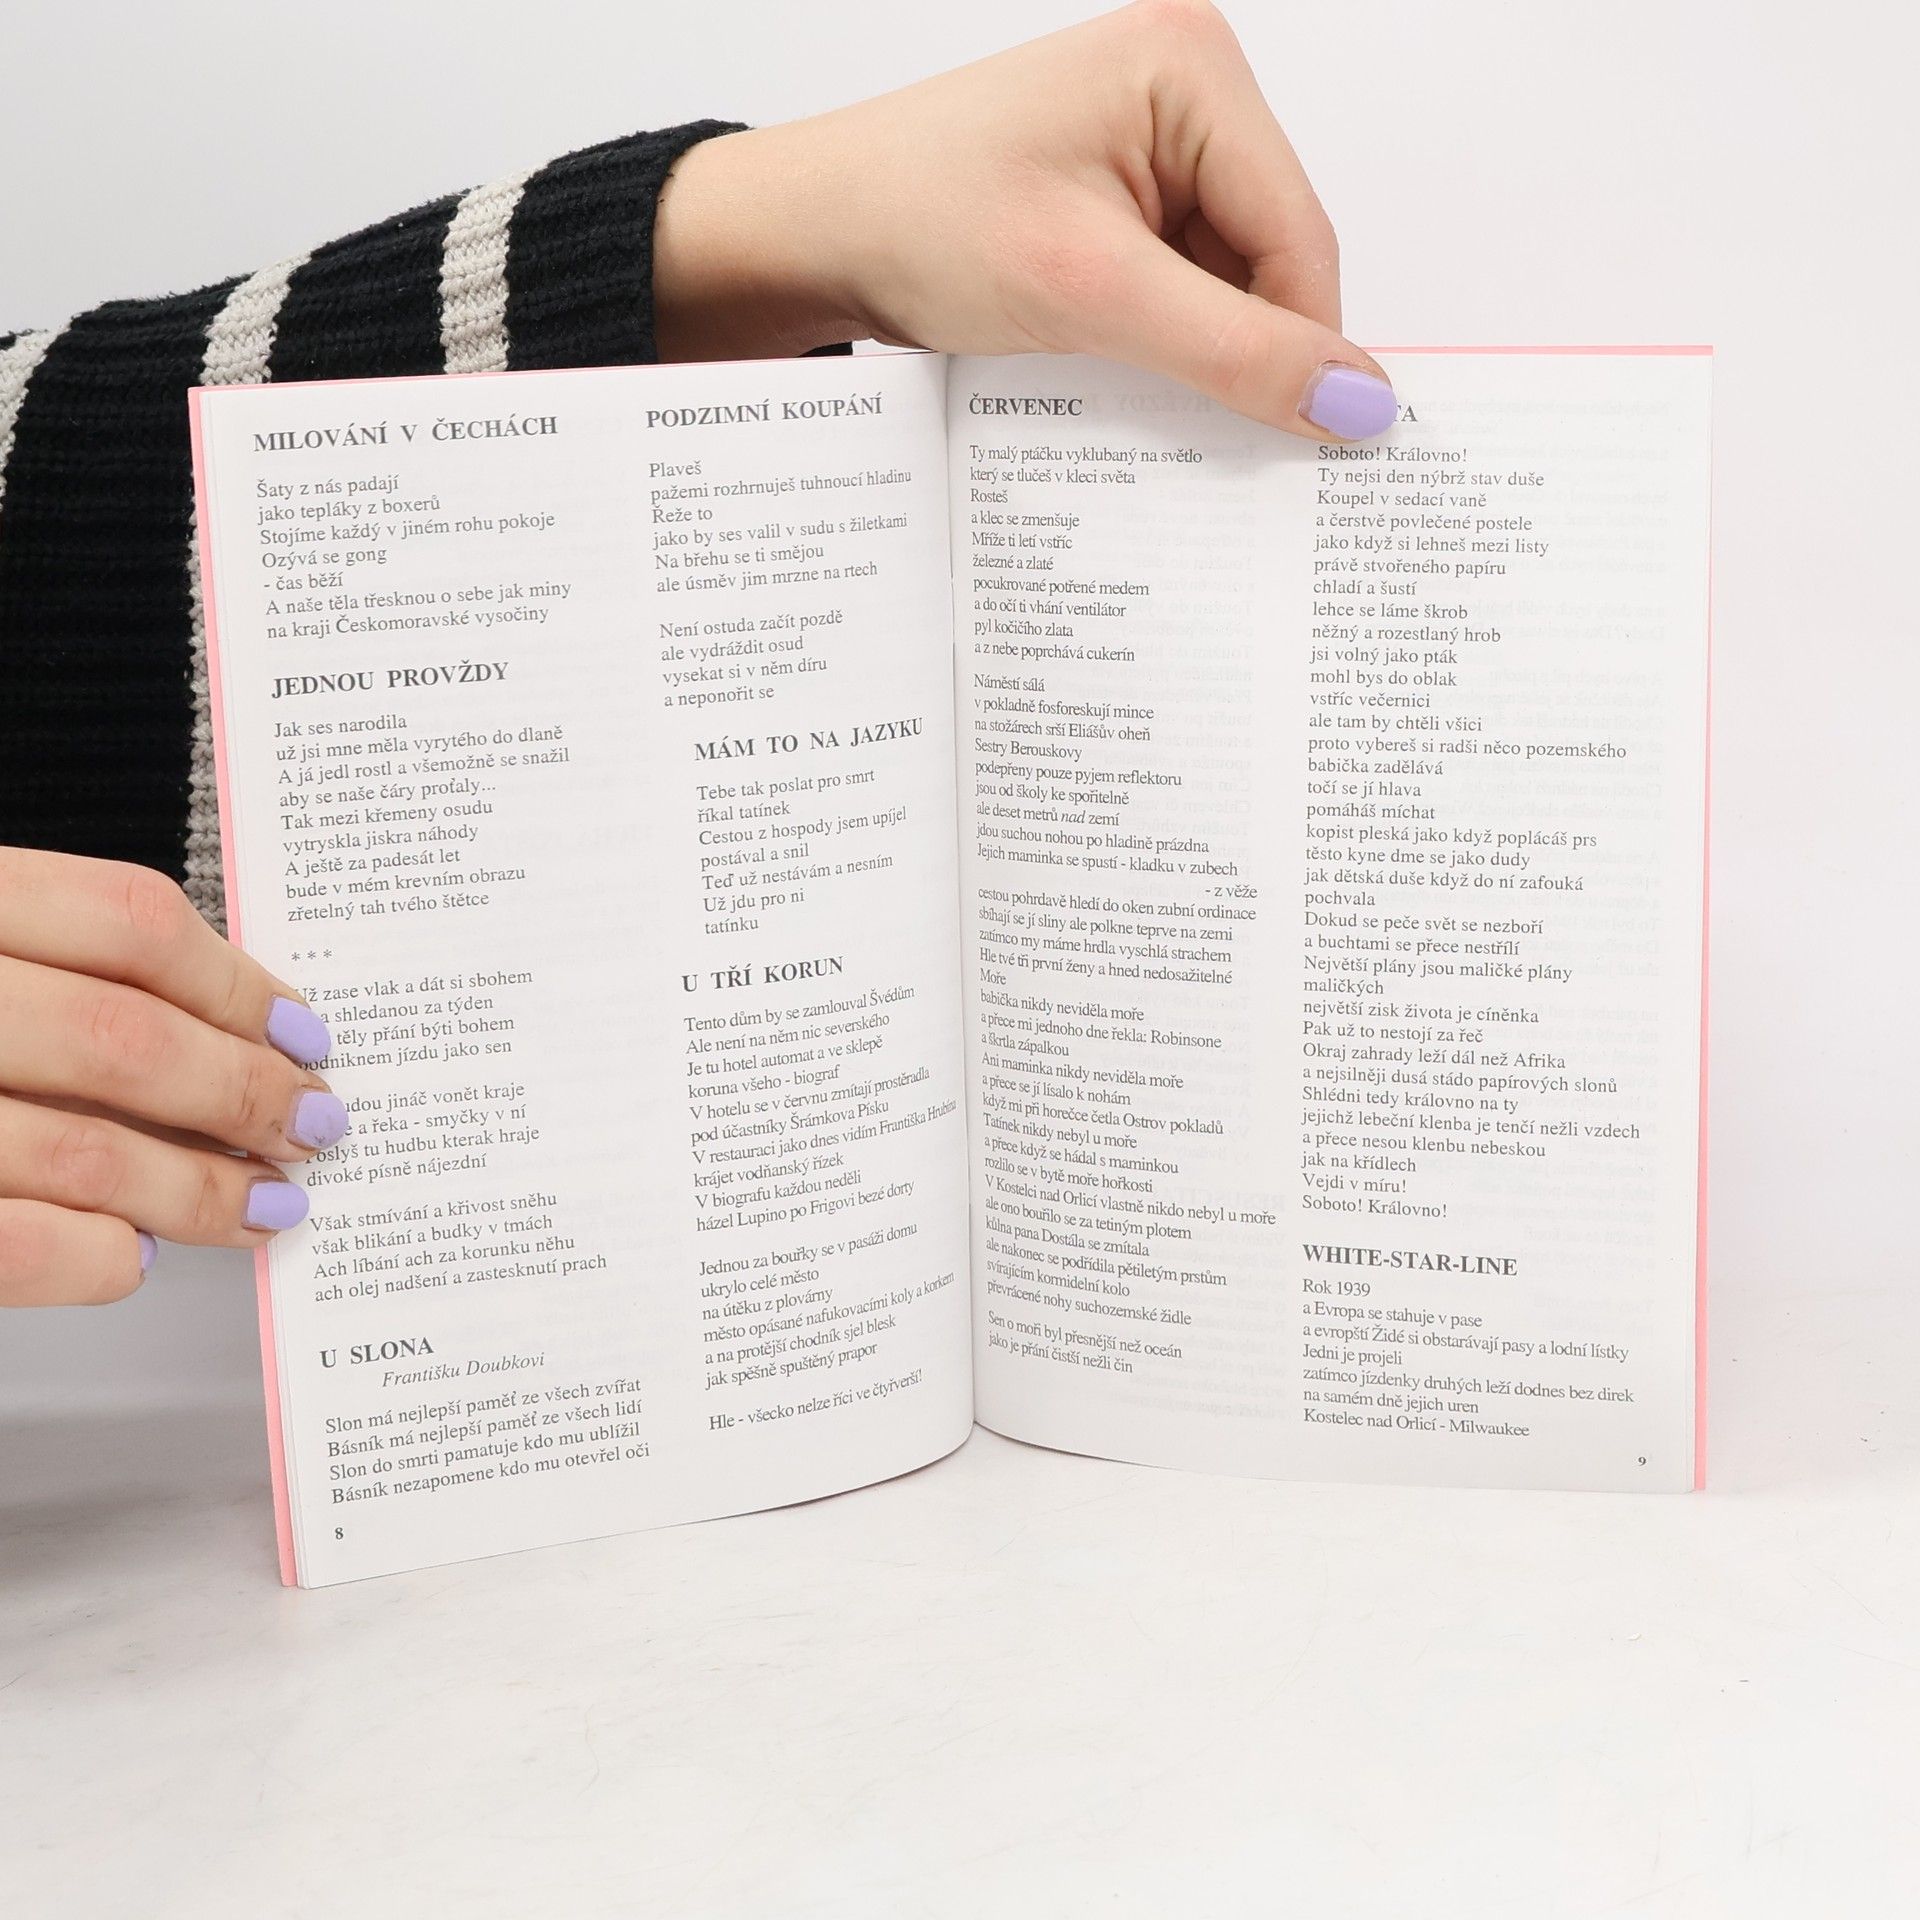 MILOVÁNÍ V ČECHÁCH
Šaty z nás padají
jako tepláky z boxerů
Stojíme každý v jiném rohu pokoje
Ozývá se gong
- čas běží
A naše těla třesknou o sebe jak miny
na kraji Českomoravské vysočiny
JEDNOU PROVŽDY
Jak ses narodila
už jsi mne měla vyrytého do dlaně
A já jedl rostl a všemožně se snažil
aby se naše čáry proťaly...
Tak mezi křemeny osudu
vytryskla jiskra náhody
A ještě za padesát let
bude v mém krevním obrazu
zřetelný tah tvého štětce
* * *
zase vlak a dát si sbohem
a shledanou za týden
těly přání býti bohem
podniknem jízdu jako sen
jináč vonět kraje
a řeka - smyčky v ní
Poslyš tu hudbu kterak hraje
divoké písně nájezdní
Však stmívání a křivost sněhu
však blikání a budky v tmách
Ach líbání ach za korunku něhu
ach olej nadšení a zastesknutí prach
U SLONA
Františku Doubkovi
Slon má nejlepší paměť ze všech zvířat
Básník má nejlepší paměť ze všech lidí
Slon do smrti pamatuje kdo mu ublížil
Básník nezapomene kdo mu otevřel oči
8
PODZIMNÍ KOUPÁNÍ
Plaveš
pažemi rozhrnuješ tuhnoucí hladinu
Řeže to
jako by ses valil v sudu s žiletkami
Na břehu se ti smějou
ale úsměv jim mrzne na rtech
Není ostuda začít pozdě
ale vydráždit osud
vysekat si v něm díru
a neponořit se
MÁM TO NA JAZYKU
Tebe tak poslat pro smrt
říkal tatínek
Cestou z hospody jsem upíjel
postával a snil
Teď už nestávám a nesním
Už jdu pro ni
tatínku
U TŘÍ KORUN
Tento dům by se zamlouval Švédům
Ale není na něm nic severského
Je tu hotel automat a ve sklepě
koruna všeho - biograf
V hotelu se v červnu zmítají prostěradla
pod účastníky Šrámkova Písku
V restauraci jako dnes vidím Františka Hrubína
krájet vodňanský řízek
V biografu každou neděli
házel Lupino po Frigovi bezé dorty
Jednou za bouřky se v pasáži domu
ukrylo celé město
na útěku z plovárny
město opásané nafukovacími koly a korkem
a na protější chodník sjel blesk
jak spěšně spuštěný prapor
Hle - všecko nelze říci ve čtyřverší!
ČERVENEC
Ty malý ptáčku vyklubaný na světlo
který se tlučeš v kleci světa
Rosteš
a klec se zmenšuje
Mříže ti letí vstříc
železné a zlaté
pocukrované potřené medem
a do očí ti vhání ventilátor
pyl kočičího zlata
a z nebe poprchává cukerín
Náměstí sálá
v pokladně fosforeskují mince
na stožárech srší Eliášův oheň
Sestry Berouskovy
podepřeny pouze pyjem reflektoru
jsou od školy ke spořitelně
ale deset metrů nad zemí
jdou suchou nohou po hladině prázdna
Jejich maminka se spustí - kladku v zubech
- z věže
cestou pohrdavě hledí do oken zubní ordinace
sbíhají se jí sliny ale polkne teprve na zemi
zatímco my máme hrdla vyschlá strachem
Hle tvé tři první ženy a hned nedosažitelné
Moře
babička nikdy neviděla moře
a přece mi jednoho dne řekla: Robinsone
a škrtla zápalkou
Ani maminka nikdy neviděla moře
a přece se jí lísalo k nohám
když mi při horečce četla Ostrov pokladů
Tatínek nikdy nebyl u moře
a přece když se hádal s maminkou
rozlilo se v bytě moře hořkosti
V Kostelci nad Orlicí vlastně nikdo nebyl u moře
ale ono bouřilo se za tetiným plotem
kůlna pana Dostála se zmítala
ale nakonec se podřídila pětiletým prstům
svírajícím kormidelní kolo
převrácené nohy suchozemské židle
Sen o moři byl přesnější než oceán
jako je přání čistší nežli čin
TA
Soboto! Královno!
Ty nejsi den nýbrž stav duše
Koupel v sedací vaně
a čerstvě povlečené postele
jako když si lehneš mezi listy
právě stvořeného papíru
chladí a šustí
lehce se láme škrob
něžný a rozestlaný hrob
jsi volný jako pták
mohl bys do oblak
vstříc večernici
ale tam by chtěli všici
proto vybereš si radši něco pozemského
babička zadělává
točí se jí hlava
pomáháš míchat
kopist pleská jako když poplácáš prs
těsto kyne dme se jako dudy
jak dětská duše když do ní zafouká
pochvala
Dokud se peče svět se nezboří
a buchtami se přece nestřílí
Největší plány jsou maličké plány
maličkých
největší zisk života je cíněnka
Pak už to nestojí za řeč
Okraj zahrady leží dál než Afrika
a nejsilněji dusá stádo papírových slonů
Shlédni tedy královno na ty
jejichž lebeční klenba je tenčí nežli vzdech
a přece nesou klenbu nebeskou
jak na křídlech
Vejdi v míru!
Soboto! Královno!
WHITE-STAR-LINE
Rok 1939
a Evropa se stahuje v pase
a evropští Židé si obstarávají pasy a lodní lístky
Jedni je projeli
zatímco jízdenky druhých leží dodnes bez direk
na samém dně jejich uren
Kostelec nad Orlicí - Milwaukee
9